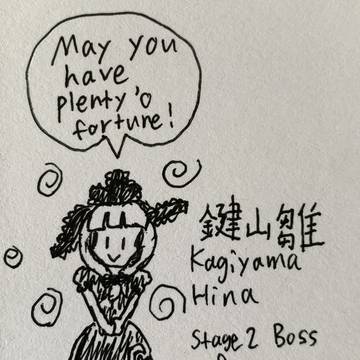 May you
have
plenty 'o
fortune!
鍵山雛
Kagiyama
Hina
Stage 2 Boss